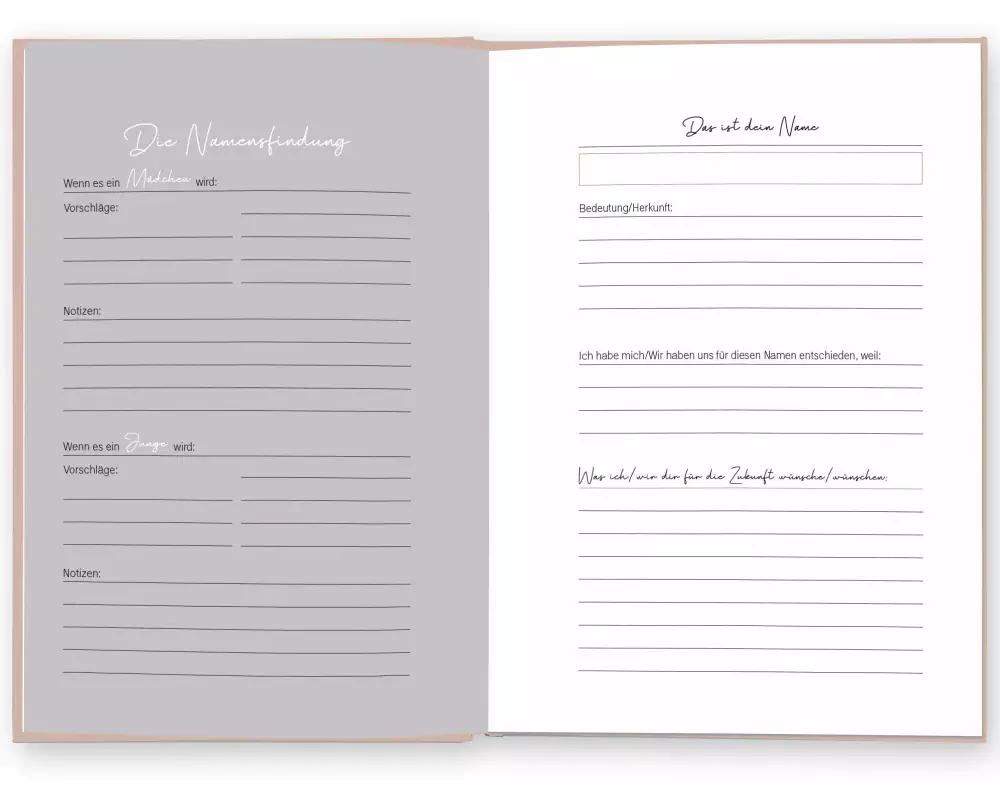 Die Namensfindung
Wenn es ein Mädchen wird:
Vorschläge:
Notizen:
Wenn es ein Junge wird:
Vorschläge:
Notizen:
Das ist dein Name
Bedeutung/Herkunft:
Ich habe mich/Wir haben uns für diesen Namen entschieden, weil:
Was ich/wir dir für die Zukunft wünsche/wünschen: